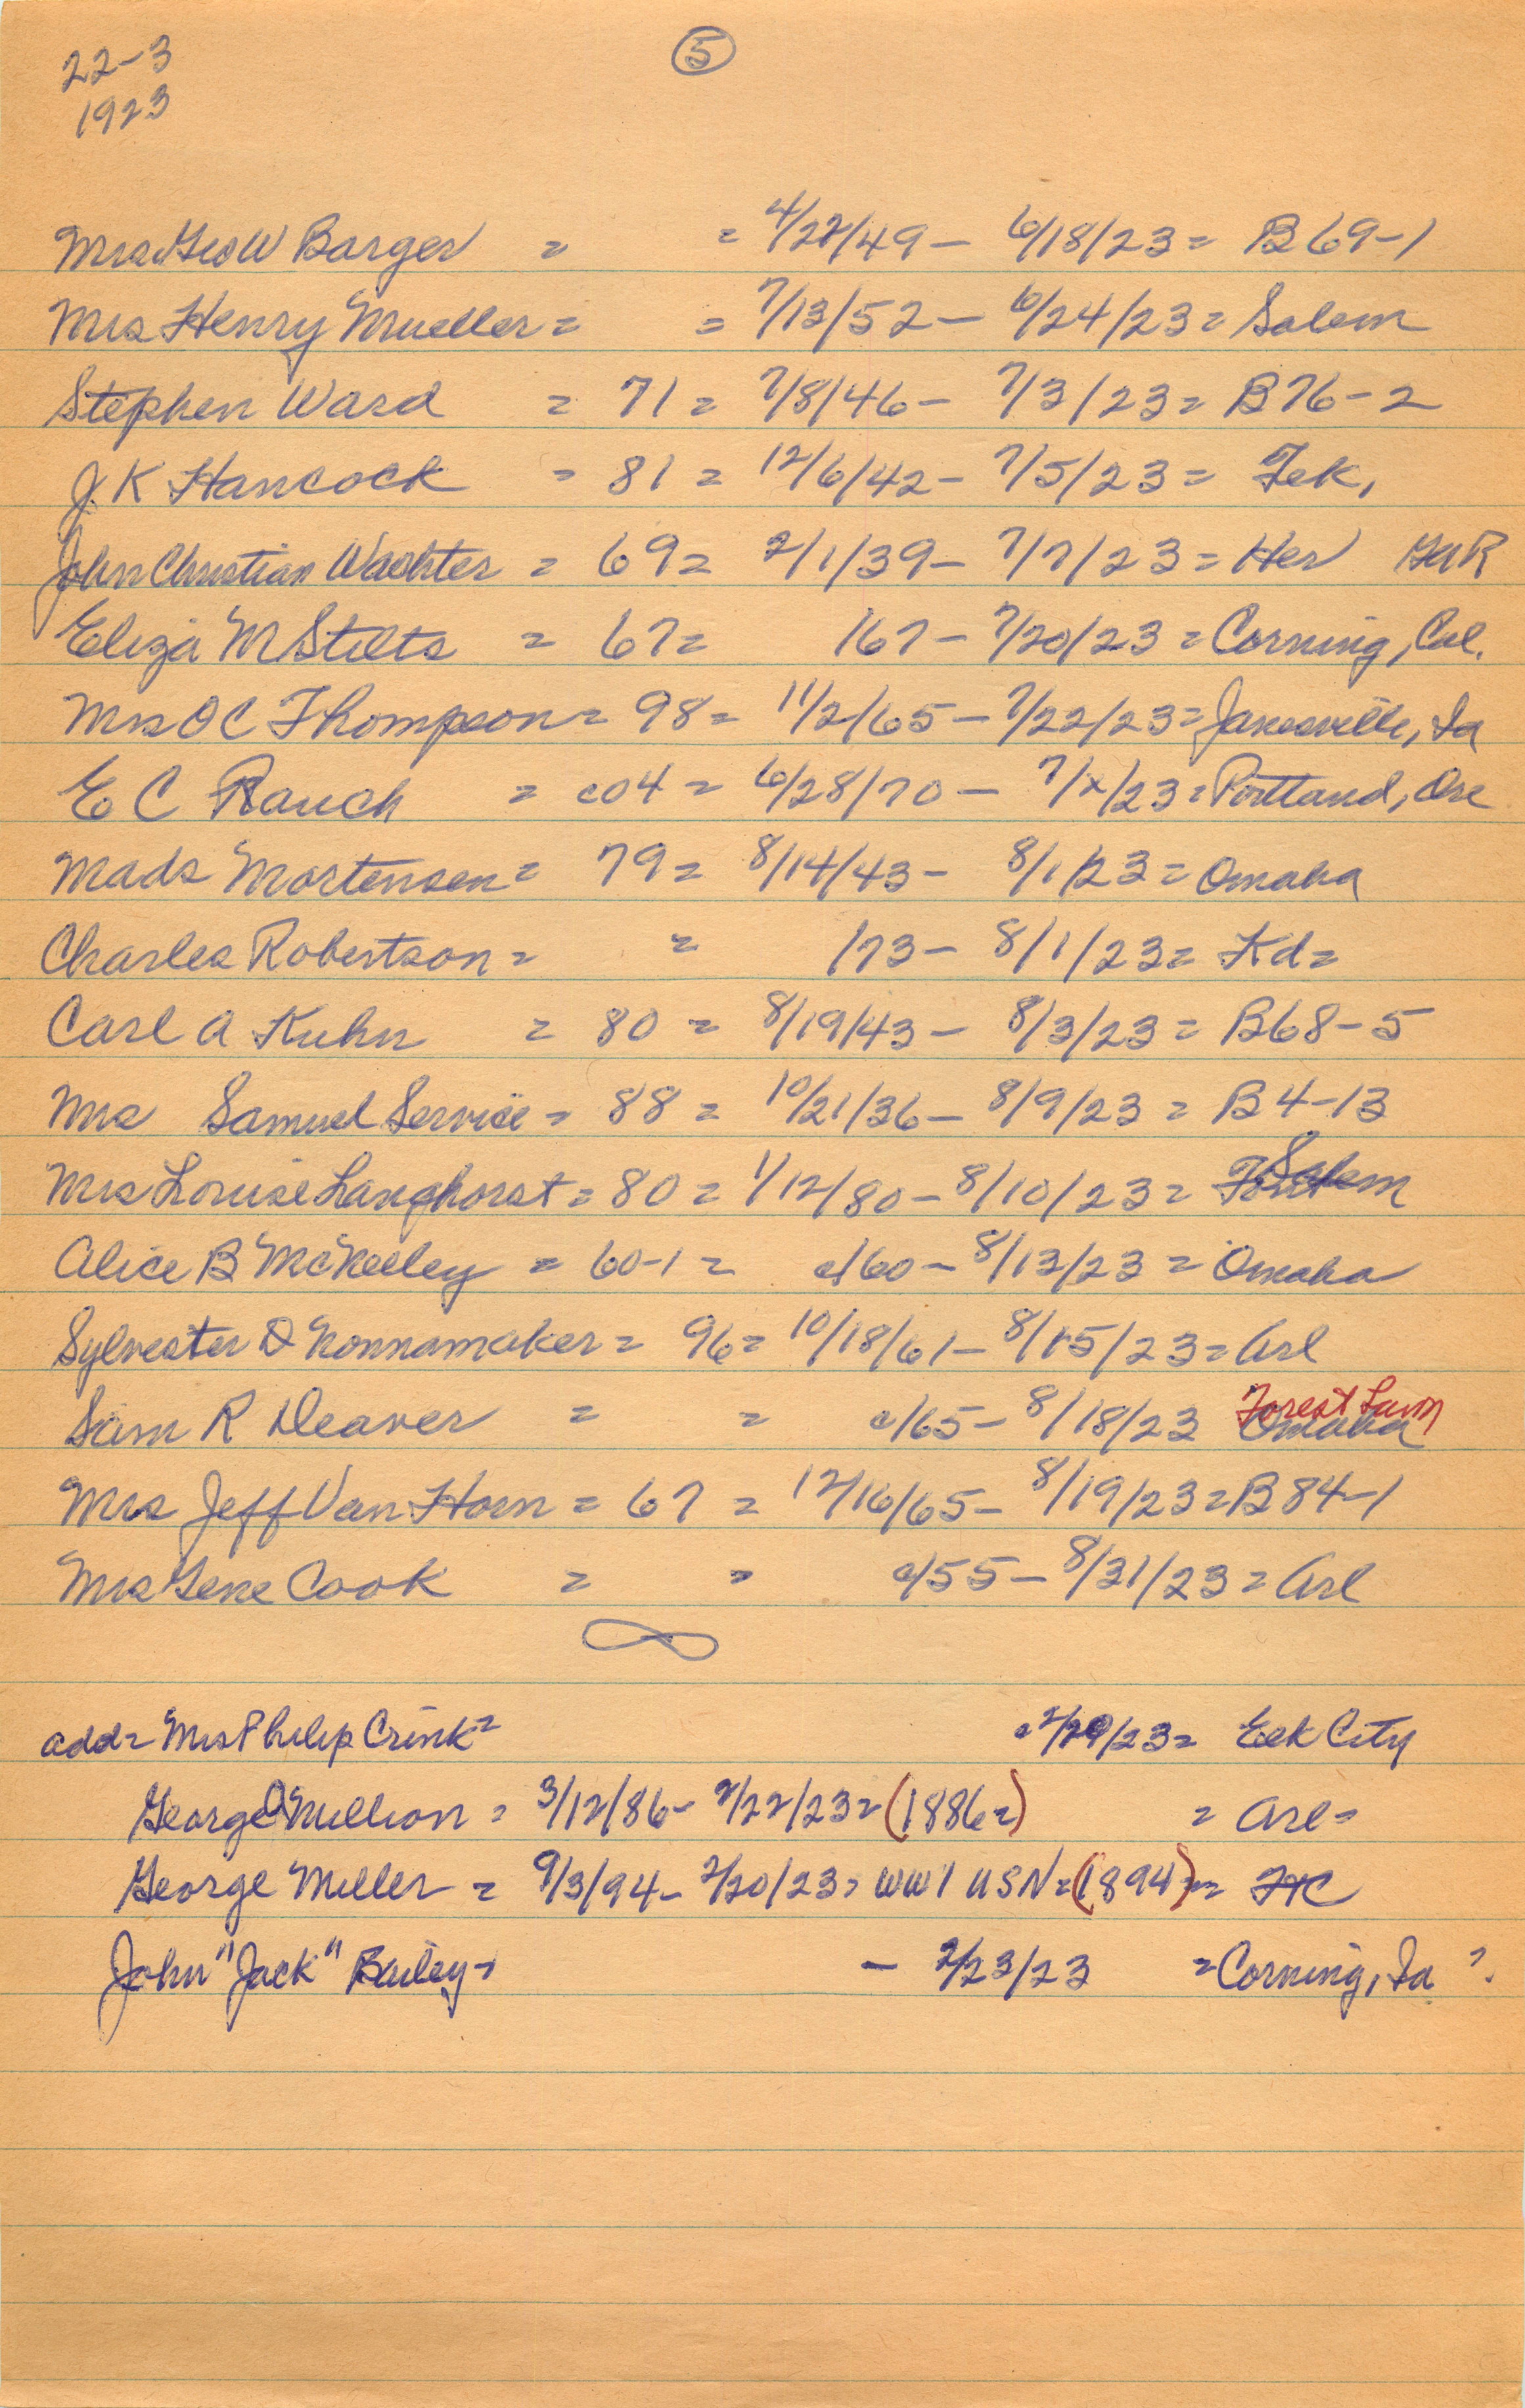 22-3
1923
5
Mrs Geo W Barger = = 4/22/49 - 6/18/23 = B 69-1
Mrs Henry Mueller = = 7/13/52 - 6/24/23 = Salem
Stephen Ward = 71 = 7/8/46 - 7/3/23 = B76-2
J. K Hancock = 81 = 12/6/42 - 7/5/23 = Tek,
John Christian Wachter = 69 = 2/1/39 - 7/7/23 = Her GAR
Eliza M Stilts = 67 = /67 - 7/20/23 = Corning, Cal.
Mrs O C Thompson = 98 = 11/2/65 - 7/22/23 = Janesville, Ia
E C Rauch = c04 = 6/28/70 - 7/x/23 = Portland, Ore
Mads Mortensen = 79 = 8/14/43 - 8/1/23 = Omaha
Charles Robertson = = /73 - 8/1/23 = Kd =
Carl A Kuhn = 80 = 8/19/43 - 8/3/23 = B68-5
Mrs Samuel Service = 88 = 10/21/36 - 8/9/23 = B 4-13
Mrs Louise Langhorst = 80 = 1/12/80 - 8/10/23 = Salem
Alice B McKeeley = 60-1 = c/60 - 8/13/23 = Omaha
Sylvester D Nonnamaker = 96 = 10/18/61 - 8/15/23 = Arl
Sam R Deaver = = c/65 - 8/18/23 Forest Lawn Omaha
Mrs Jeff Van Horn = 67 = 12/16/65 - 8/19/23 = B 84-1
Mrs Gene Cook = = c/55 - 8/31/23 = Arl
add = Mrs Philip Crink = 2/20/23 = Eek City
George D Million = 3/12/86 - 2/22/23 = (1886 =) = Arl =
George Miller = 9/3/94 - 2/20/23 = WW1 USN = (1894) = FtC
John "Jack" Bailey - - 2/23/23 = Corning, Ia ?